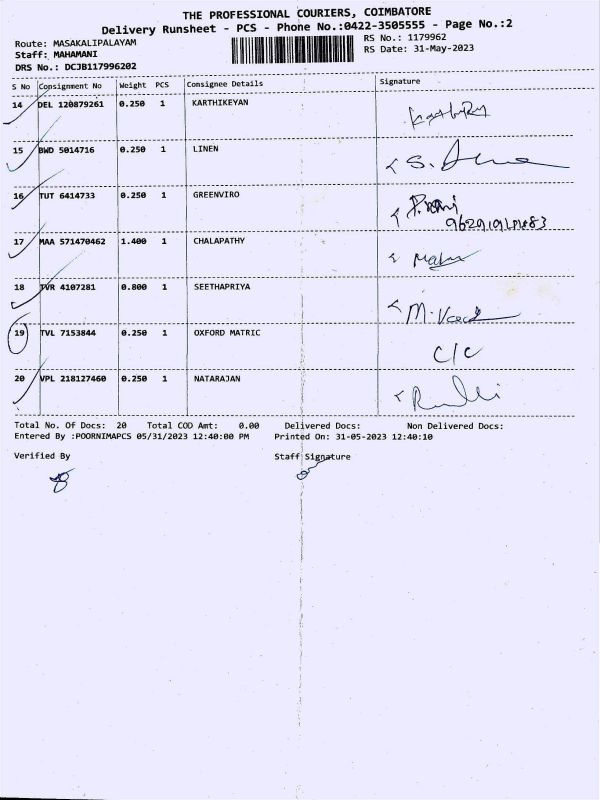 THE PROFESSIONAL COURIERS, COIMBATORE
Delivery Runsheet - PCS - Phone No.:0422-3505555 - Page No.:2
Route: MASAKALIPALAYAM
Staff: MAHAMANI
DRS No.: DCJB117996202
RS No.: 1179962
RS Date: 31-May-2023
S No Consignment No Weight PCS Consignee Details Signature
14 DEL 120879261 0.250 1 KARTHIKEYAN
15 BWD 5014716 0.250 1 LINEN
16 TUT 6414733 0.250 1 GREENVIRO
17 MAA 571470462 1.400 1 CHALAPATHY
18 TVR 4107281 0.800 1 SEETHAPRIYA
19 TVL 7153844 0.250 1 OXFORD MATRIC C/C
20 VPL 218127460 0.250 1 NATARAJAN
Total No. Of Docs: 20 Total COD Amt: 0.00 Delivered Docs: Non Delivered Docs:
Entered By :POORNIMAPCS 05/31/2023 12:40:00 PM Printed On: 31-05-2023 12:40:10
Verified By Staff Signature